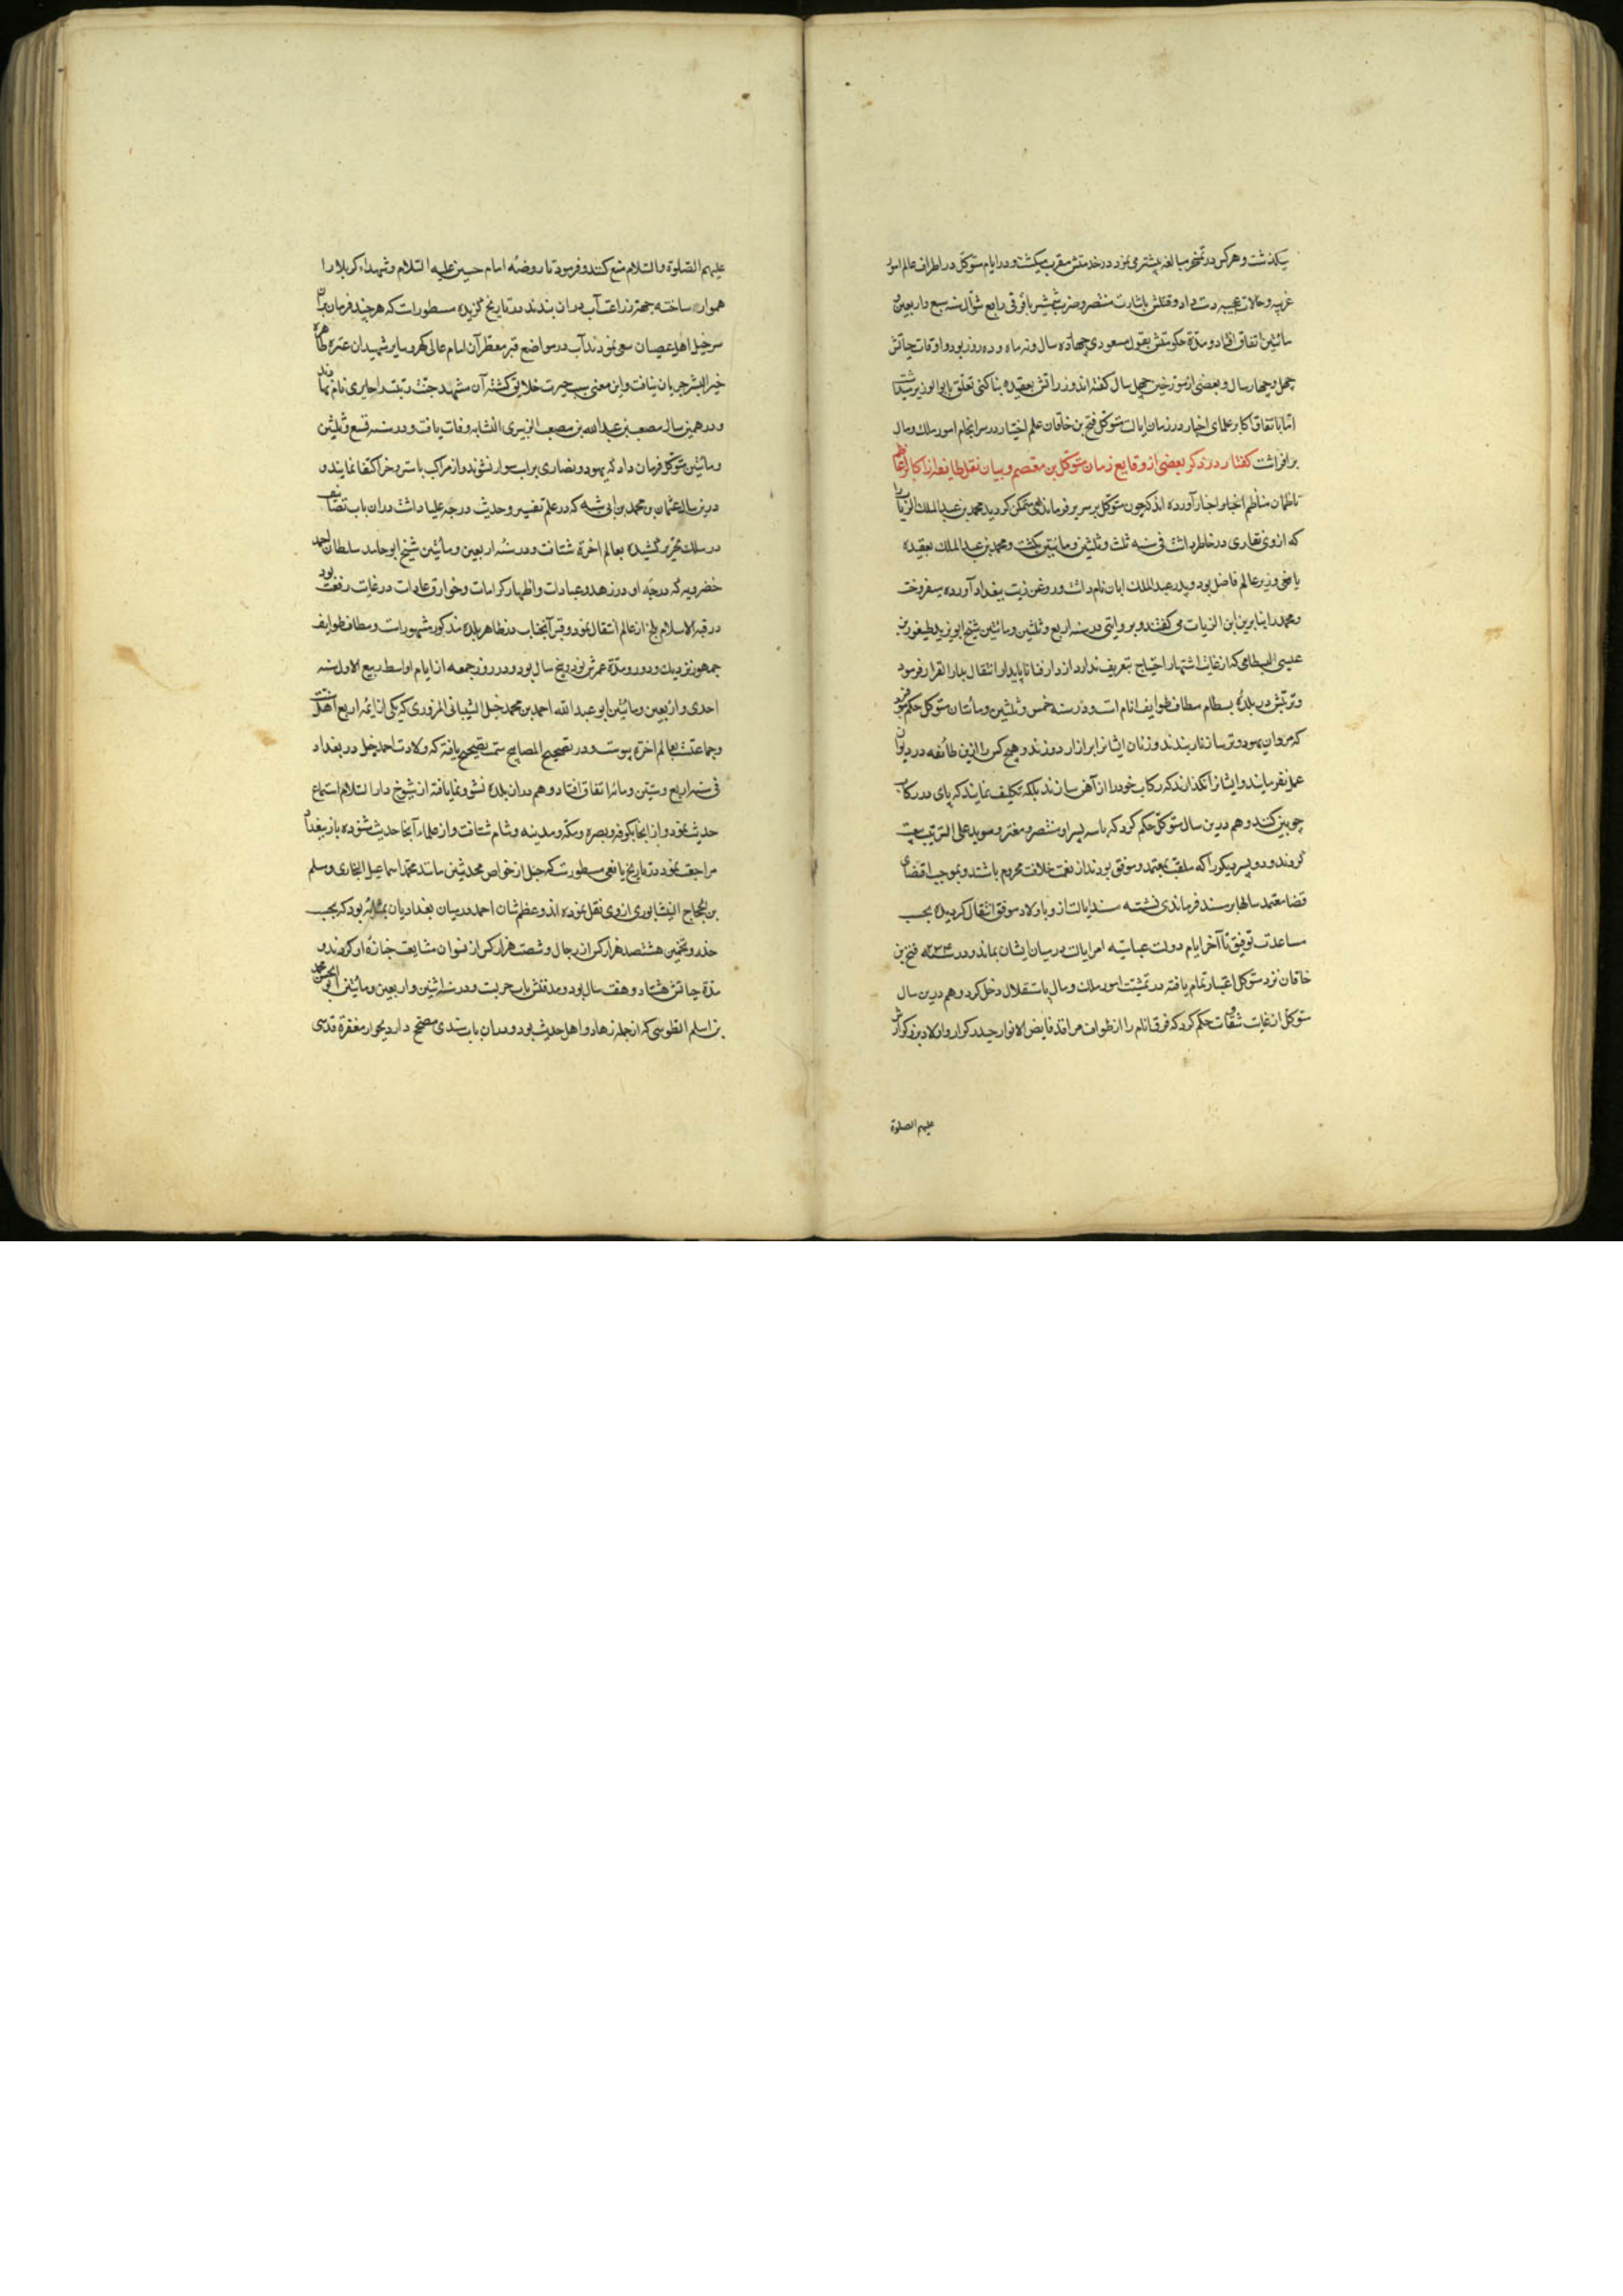 میگذشت و هرکس در تمسخر مبالغه بیشتر می نمود در خدمتش مقرب میگشت و در ایام متوکل در اطراف عالم امور
غریبه و حالات عجیبه دست داد و قتلش باشارت منتصر و ضرب شمشیر باغر ترکی در رابع شوال سنه سبع و اربعین و
مائتین اتفاق افتاد و مدة حکومتش بقول مسعودی چهارده سال و نه ماه و ده روز بود و اوقات حیاتش
چهل و چهار سال و بعضی از مورخین چهل سال گفته اند وزراتش بعقیده بناکتی تعلق بابو الوزیر میداشت
اما باتفاق اکابر علمای اخبار در زمان ایالت متوکل فتح بن خاقان علم اختیار در سرانجام امور ملک و مال
برافراشت گفتار در ذکر بعضی از وقایع زمان متوکل بن معتصم و بیان نقل طایفه از اکابر اعاظم
ناظمان مناظم اخبار آورده اند که چون متوکل بر سریر فرماندهی متمکن گردید محمد بن عبد الملک الزیات را
که از وی نقاری در خاطر داشت فی سنه ثلث و ثلثین و مائتین بکشت و محمد بن عبد الملک بعقیده
یافعی وزیر عالم فاضل بود و پدر عبد الملک ابان نام داشت و روغن زیت ببغداد آورده میفروخت
و محمد را بنابرین ابن الزیات می گفتند و بروایتی در سنه اربع و ثلثین و مائتین شیخ ابو یزید طیفور بن
عیسی البسطامی که از غایت اشتهار احتیاج بتعریف ندارد از دار فنا ناپایدار انتقال بدار القرار فرمود
و تربتش در بلدهٔ بسطام مطاف طوایف انام است و در سنه خمس و ثلثین و مأتان متوکل حکم فرمود
که مردان یهود و ترسا زنار بندند و زنان ایشانرا برازار دوزند و هیچ کس را ازین طائفه در دیوان
عمل نفرمایند و ایشانرا نگذارند که رکاب خود را از آهن سازند بلکه تکلیف نمایند که پای در رکاب
چوبین کنند و هم درین سال متوکل حکم کرد که با سه پسر او منتصر و معتز و موید علی الترتیب بیعت
کردند و دو پسر دیگر را که ملقب بمعتمد و موفق بودند از نعمت خلافت محروم باشند و بموجب اقتضای
قضا معتمد سالها بر مسند فرماندهی نشسته مسند ایالت از و باولاد موفق انتقال کردید و بحسب
مساعدت توفیق تا آخر ایام دولت عباسیه امر ایالت در میان ایشان بماند و در سنه ۲۳۴ فتح بن
خاقان نزد متوکل اعتبار تمام یافته در تمشیت امور ملک و مال باستقلال دخل کرد و هم درین سال
متوکل از غایت شقاوت حکم کرد که فرق انام را از طواف مراقد فایض الانوار حیدر کرار و اولاد بزرکوارش
علیهم الصلوة
علیهم الصلوة والسلام منع کنند و فرمود تا روضهٔ امام حسین علیه السلام و شهداء کربلا را
هموار ساخته جهة زراعت آب دران بندند در تاریخ گزیده مسطورات که هر چند فرمان بران
سرخیل اهل عصیان سعی نمودند آب در مواضع قبر معطر آن امام عالی گهر و سایر شهیدان عترة طاهره
خیر البشر جریان نیافت و این معنی سبب حیرت خلایق گشته آن مشهد جنت رتبت را حایری نام نهادند
و در همین سال مصعب بن عبد الله بن مصعب الزبیری النسابه وفات یافت و در سنه تسع و ثلثین
و مائتین متوکل فرمان داد که یهود و نصاری بر اسب سوار نشوند و از مراکب باستر و خر اکتفا نمایند و
درین سال عثمان بن محمد بن ابی شیبه که در علم تفسیر و حدیث درجه علیا داشت دران باب تصانیف
در سلک تحریر کشیده بعالم اخرة شتافت و در سنه اربعین و مأتین شیخ ابو حامد سلطان احمد
خضرویه که درجه او در زهد و عبادات و اظهار کرامات و خوارق عادات در غایت رفعت بود
در قبة الاسلام بلخ از عالم انتقال نمود و قبر آنجناب در ظاهر بلده مذکور مشهورات و مطاف طوایف
جمهور نزدیک و دور و مدة عمرش نود و پنج سال بود و در روز جمعه از ایام اواسط ربیع الاول سنه
احدی و اربعین و مائتین ابو عبد الله احمد بن محمد حنبل الشیبانی المروزی که یکی از ایمه اربع اهل سنت
و جماعتست بعالم اخرة پیوست و در تصحیح المصابیح سمت تصحیح یافته که ولادت احمد حنبل در بغداد
فی سنه اربع و ستین و مائه اتفاق افتاد و هم دران بلده نشو و نما یافته از شیوخ دار السلام استماع
حدیث نمود و از انجا بکوفه و بصره و مکه و مدینه و شام شتافت و از علماء آنجا حدیث شنوده باز ببغداد
مراجعت نمود در تاریخ یافعی مسطورست که حنبل از خواص محدثین مانند محمد اسماعیل البخاری و مسلم
بن الحجاج النیشابوری از وی نقل نموده اند و عظم شان احمد در میان بغدادیان بمثابهٔ بود که بحسب
حذر و تخمین هشتصد هزار کس از رجال و شصت هزار کس از نسوان مشایعت جنازهٔ او کردند و
مدة حیاتش هشتاد و هفت سال بود و مدفنش باب حربست و در سنه اثنین و اربعین و مائتین ابو الحسن محمد
بن اسلم الطوسی که از جمله زهاد و اهل حدیث بود و دران باب مسندی دارد بجوار مغفرة قدسی